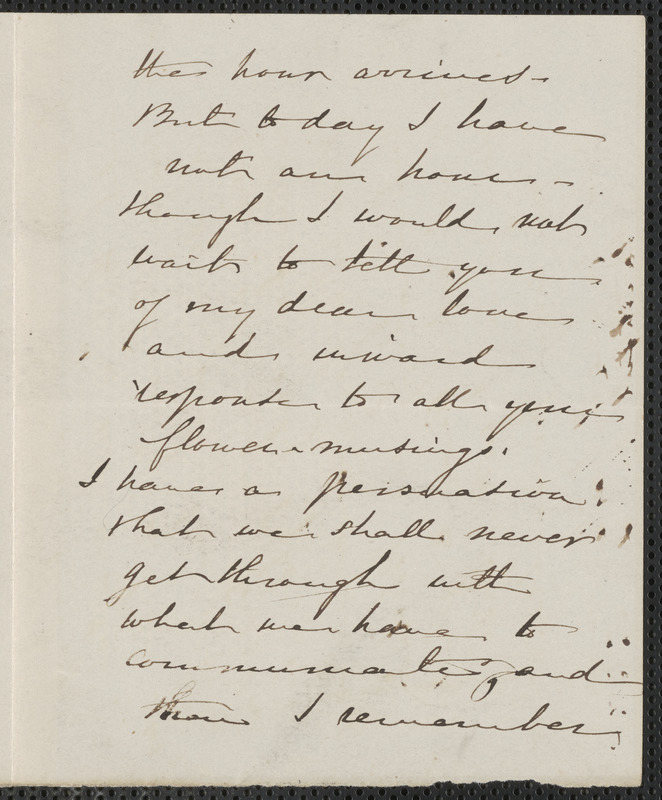 the hour arrives -
But to day I have
not an hour -
though I would not
wait to tell you
of my dear love
and inward
response to all your
flower-musings.
I have a persuasion
that we shall never
get through with
what we have to
communicate, and
then I remember